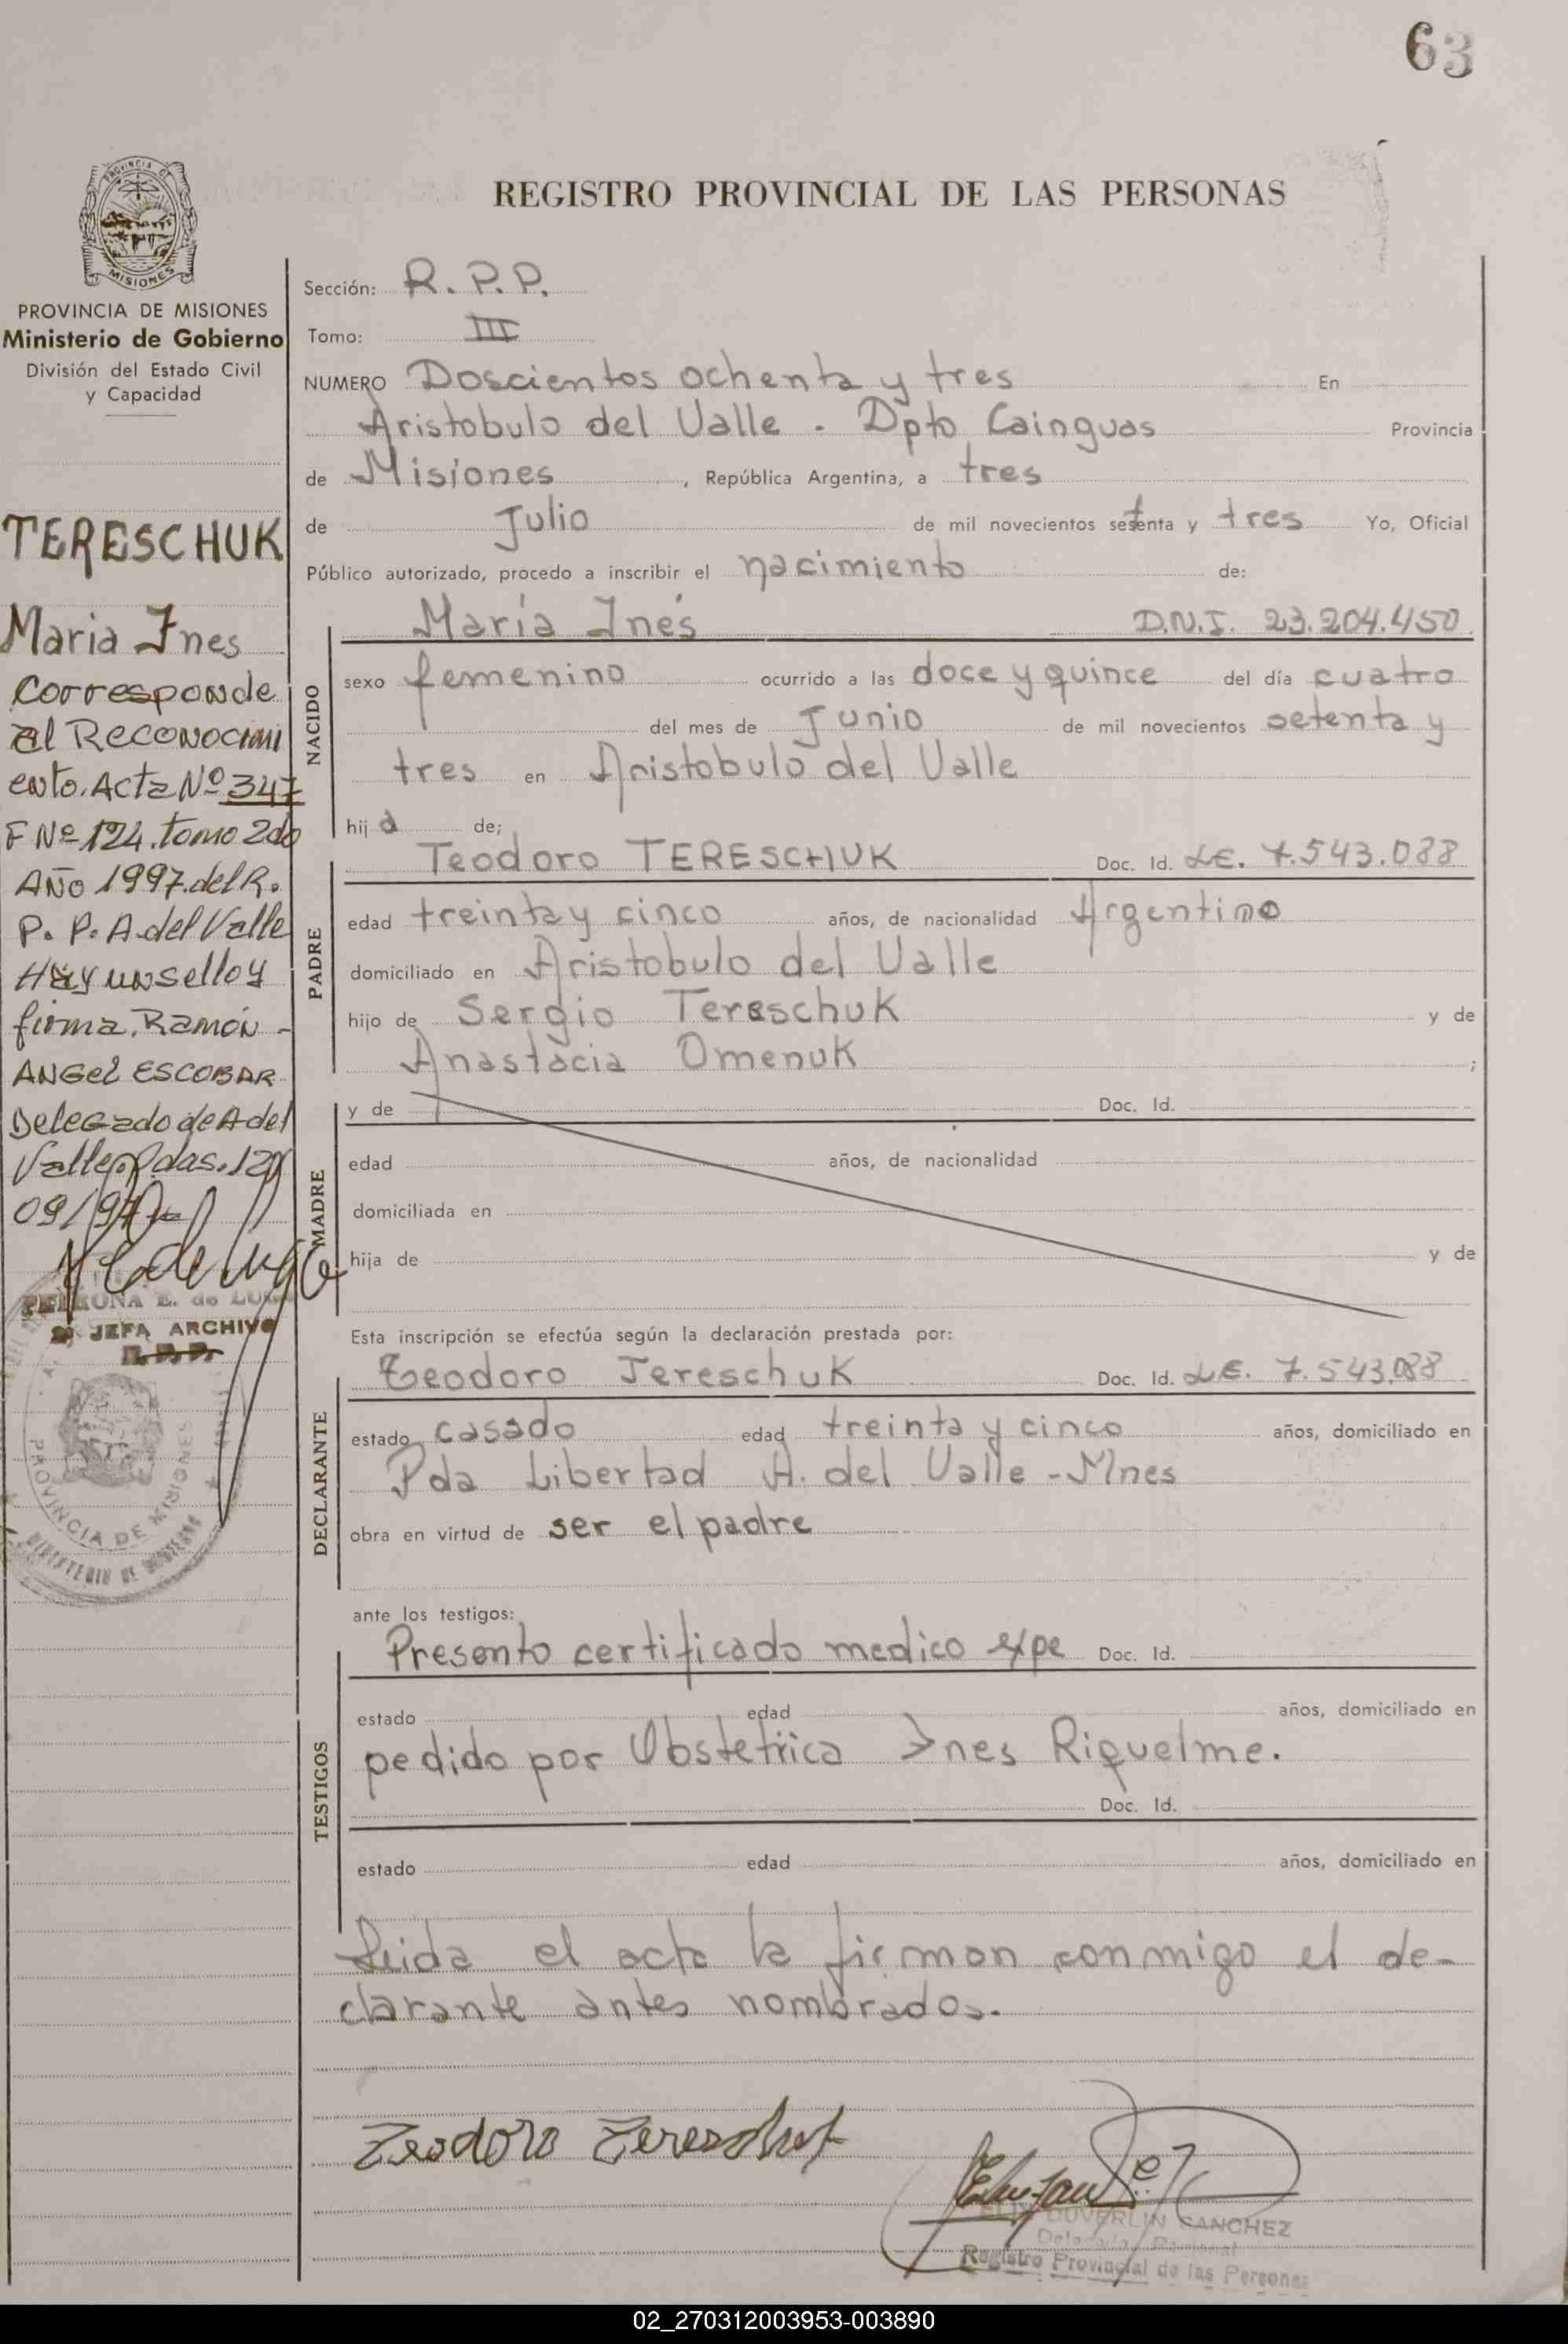 63
REGISTRO PROVINCIAL DE LAS PERSONAS
MISIONES
PROVINCIA DE MISIONES
Ministerio de Gobierno
División del Estado Civil
y Capacidad
TERESCHUK
Maria Ines
Corresponde
al Reconocimi
ento. Acta Nº 347
F Nº 124. tomo 2do
AÑO 1997. del R.
P. P. A. del Valle
Hay un sello y
firma. Ramón -
ANGEL ESCOBAR
Delegado de A del
Valle. Pdas. 12/
09/97
JEFA ARCHIVO
R.P.P.
PROVINCIA DE MISIONES
MINISTERIO DE GOBIERNO
Sección: R. P. P.
Tomo: III
NUMERO Doscientos ochenta y tres En
Aristobulo del Valle - Dpto Cainguas Provincia
de Misiones , República Argentina, a tres
de Julio de mil novecientos setenta y tres Yo, Oficial
Público autorizado, procedo a inscribir el nacimiento de:
NACIDO
María Inés D.N.I. 23.204.450
sexo femenino ocurrido a las doce y quince del día cuatro
del mes de Junio de mil novecientos setenta y
tres en Aristobulo del Valle
hij a de;
PADRE
Teodoro TERESCHUK Doc. Id. LE. 7.543.088
edad treinta y cinco años, de nacionalidad Argentino
domiciliado en Aristobulo del Valle
hijo de Sergio Tereschuk y de
Anastacia Omenuk ;
MADRE
y de Doc. Id.
edad años, de nacionalidad
domiciliada en
hija de y de
Esta inscripción se efectúa según la declaración prestada por:
DECLARANTE
Teodoro Tereschuk Doc. Id. LE. 7.543.088
estado casado edad treinta y cinco años, domiciliado en
Pda Libertad A. del Valle - Mnes
obra en virtud de ser el padre
ante los testigos:
TESTIGOS
Presento certificado medico expe Doc. Id.
estado edad años, domiciliado en
pedido por Obstetrica Ines Riquelme.
Doc. Id.
estado edad años, domiciliado en
Leida el acta la firman conmigo el de-
clarante antes nombrados.
Teodoro Tereschuk
DUVERLIN SANCHEZ
Registro Provincial de las Personas
02_270312003953-003890